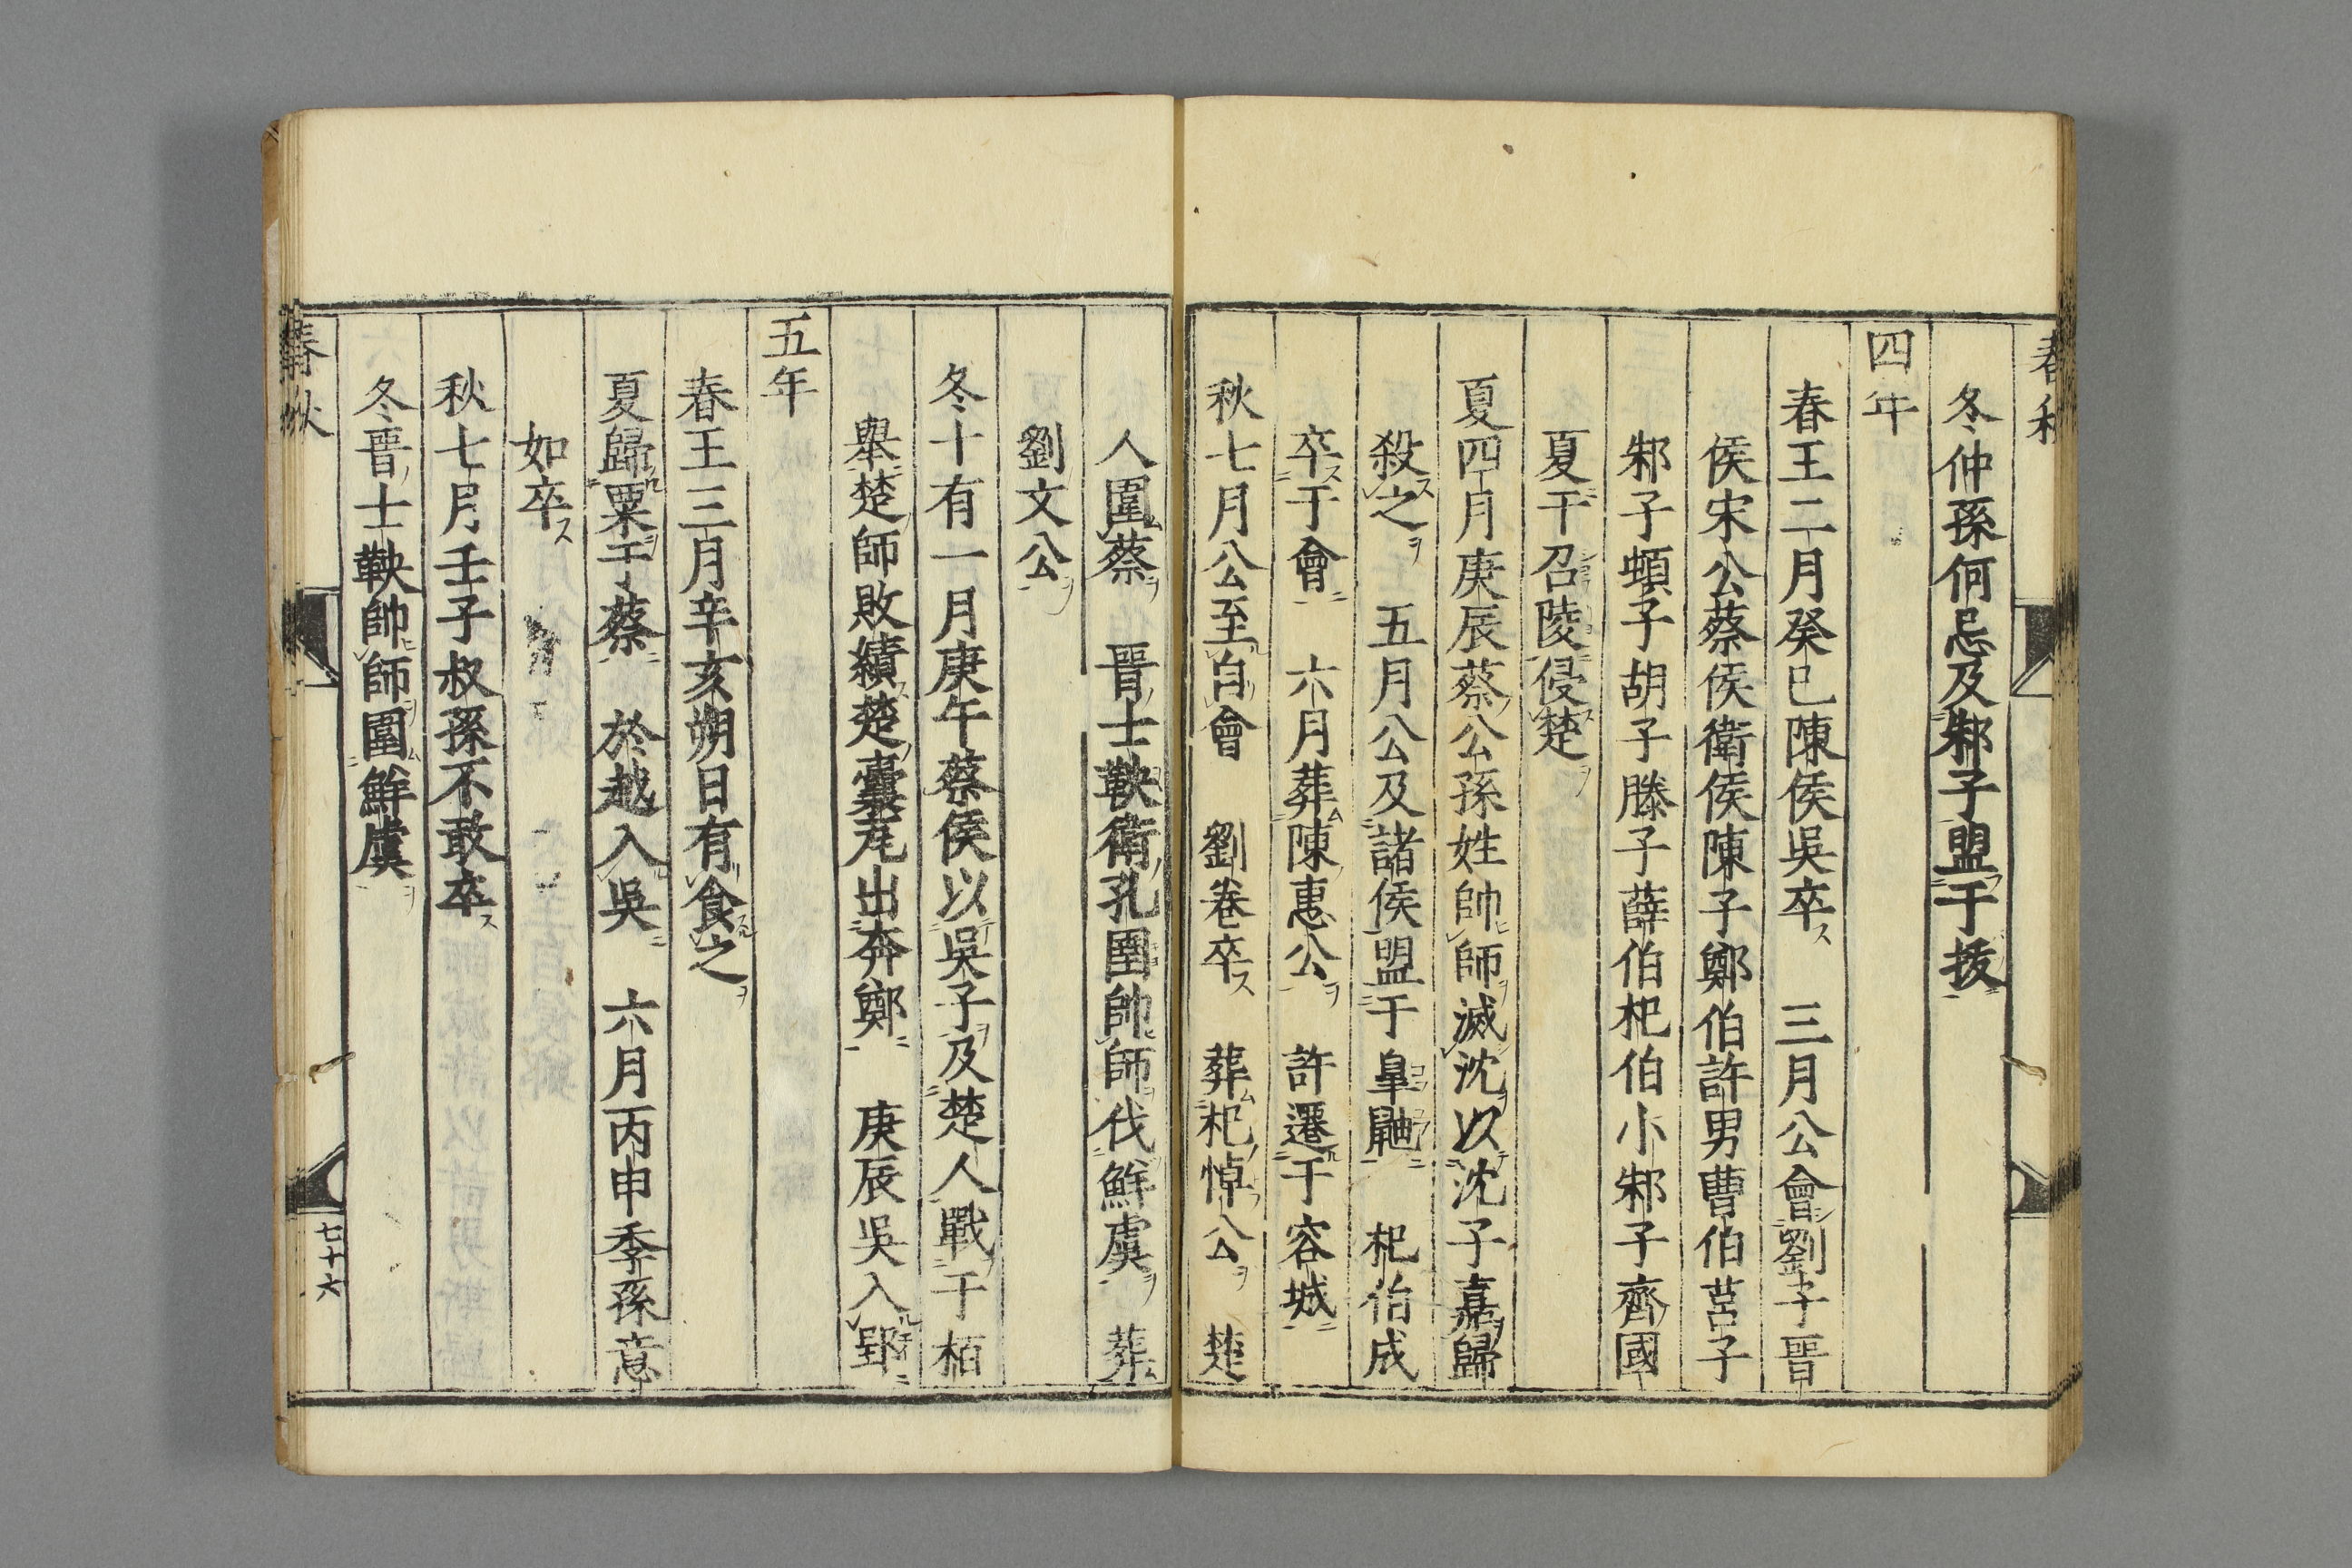 冬仲孫何忌及邾子盟于拔
四年
春王二月癸巳陳侯吳卒　三月公會劉子晉
侯宋公蔡侯衛侯陳子鄭伯許男曹伯莒子
邾子頓子胡子滕子薛伯杞伯小邾子齊國
夏于召陵侵楚
夏四月庚辰蔡公孫姓帥師滅沈以沈子嘉歸
殺之　五月公及諸侯盟于皐鼬　杞伯成
卒于會　六月葬陳惠公　許遷于容城
秋七月公至自會　劉卷卒　葬杞悼公　楚
人圍蔡　晉士鞅衛孔圉帥師伐鮮虞　葬
劉文公
冬十有一月庚午蔡侯以吳子及楚人戰于栢
舉楚師敗績楚囊瓦出奔鄭　庚辰吳入郢
五年
春王三月辛亥朔日有食之
夏歸粟于蔡　於越入吳　六月丙申季孫意
如卒
秋七月壬子叔孫不敢卒
冬晉士鞅帥師圍鮮虞
春秋
七十六